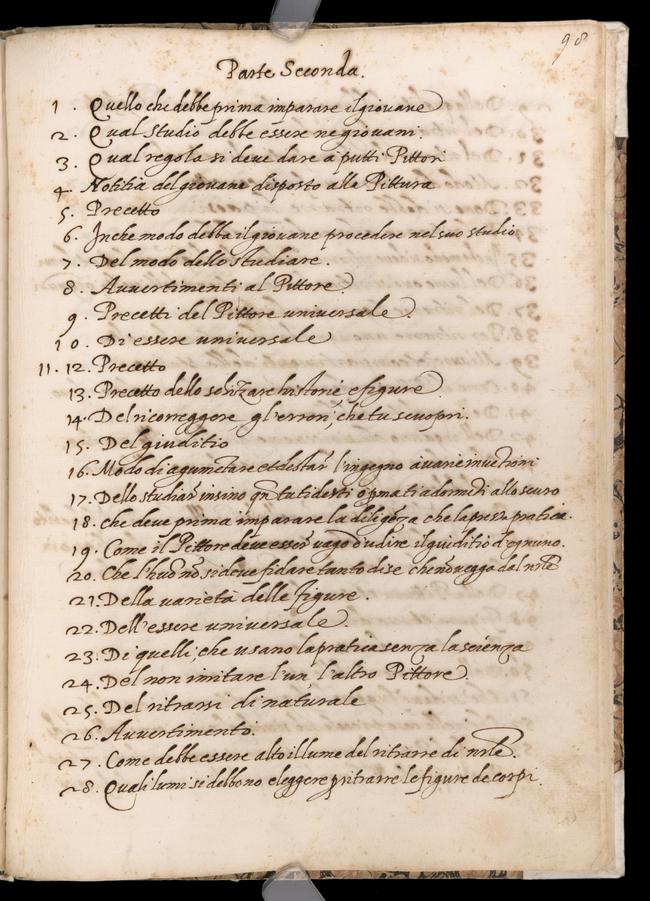 98
Parte Seconda.
1. Quello che debbe prima imparare il giovane
2. Qual studio debbe essere ne giovani.
3. Qual regola si deve dare a putti Pittori
4. Notitia del giovane disposto alla Pittura
5. Precetto
6. In che modo debba il giovane procedere nel suo studio
7. Del modo dello studiare.
8. Avvertimenti al Pittore.
9. Precetti del Pittore universale.
10. Di essere universale
11. 12. Precetto
13. Precetto dello schizzare historie e figure
14. Del ricorreggere gl'errori, che tu scuopri.
15. Del giuditio
16. Modo di agumētare et destar l'ingegno a varie invētioni
17. Dello studiar insino qn̄ tu ti desti o pma ti adormēti allo scuro
18. che deve prima imparare la diligēza che la presta pratica.
19. Come il Pittore deve esser vago d'udire il giuditio d'ognuno.
20. Che l'huō nō si deve fidare tanto di se che nō vegga dal nr̄le
21. Della varietà delle figure.
22. Dell'essere universale.
23. Di quelli, che usano la pratica senza la scienza
24. Del non imitare l'un' l'altro Pittore.
25. Del ritrarsi di naturale
26. Avvertimento.
27. Come debbe essere alto il lume del ritrarre di nr̄le.
28. Quali lumi si debbono eleggere p ritrarre le figure de corpi.